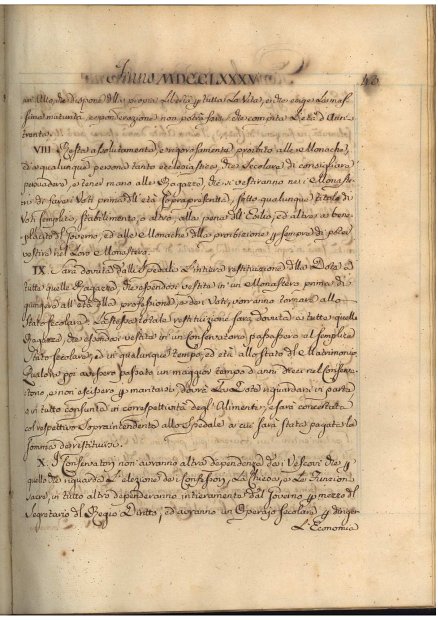 Anno MDCCLXXXV
43
un Atto, che dispone della propria Libertà p tutta La Vita, e che esige La mas-
sima maturità, e ponderazione non potrà farsi, che compita L'età d'Anni
trenta.
VIII. Resta assolutamente, e rigorosamente proibito alle Monache,
ed a qualunque persona tanto ecclesiastica, che Secolare di consigliare
persuadere, e tener mano alle Ragazze, che si vestiranno nei Monaste-
ri di fare i Voti prima dell'età soprapresritta, sotto qualunque titolo di
Voti semplici, stabilimento, o altro, alla pena dell'Esilio, ed altre a bene-
placito del Governo, ed alle Monache della proibizione p sempre di poter
vestire nel Loro Monastero.
IX. Sarà dovuta dallo Spedale L'intiera restituzione della Dote a
tutte quelle Ragazze, che essendosi vestite in un Monastero prima di
giungere all'età della professione, o dei Voti, vorranno tornare allo
Stato secolare. La stessa totale restituzione sarà dovuta a tutte quelle
Ragazze, che essendosi vestite in un Conservatorio passassero al semplice
Stato secolare, ed in qualunque tempo, ed età allo stato di Matrimonio
Qualora poi avessero passato un maggior tempo d'anni dieci nel Conserva-
torio, e non escissero p maritarsi, dovrà La Dote riguardarsi in parte
o in tutto consunta in correspettività degl'Alimenti, e sarà concertata
col respettivo Sopraintendente allo Spedale a cui sarà stata pagata la
somma da restituirsi.
X. I Conservatorj non avranno altra dependenza dai Vescovi che p
quello che riguarda L'elezione dei Confessori, La Chiesa, e Le Funzioni
sacre, in tutto altro dependeranno intieramente dal Governo p mezzo del
Segretario del Regio Diritto, ed avranno un Operajo secolare p dirigere
L'Economia